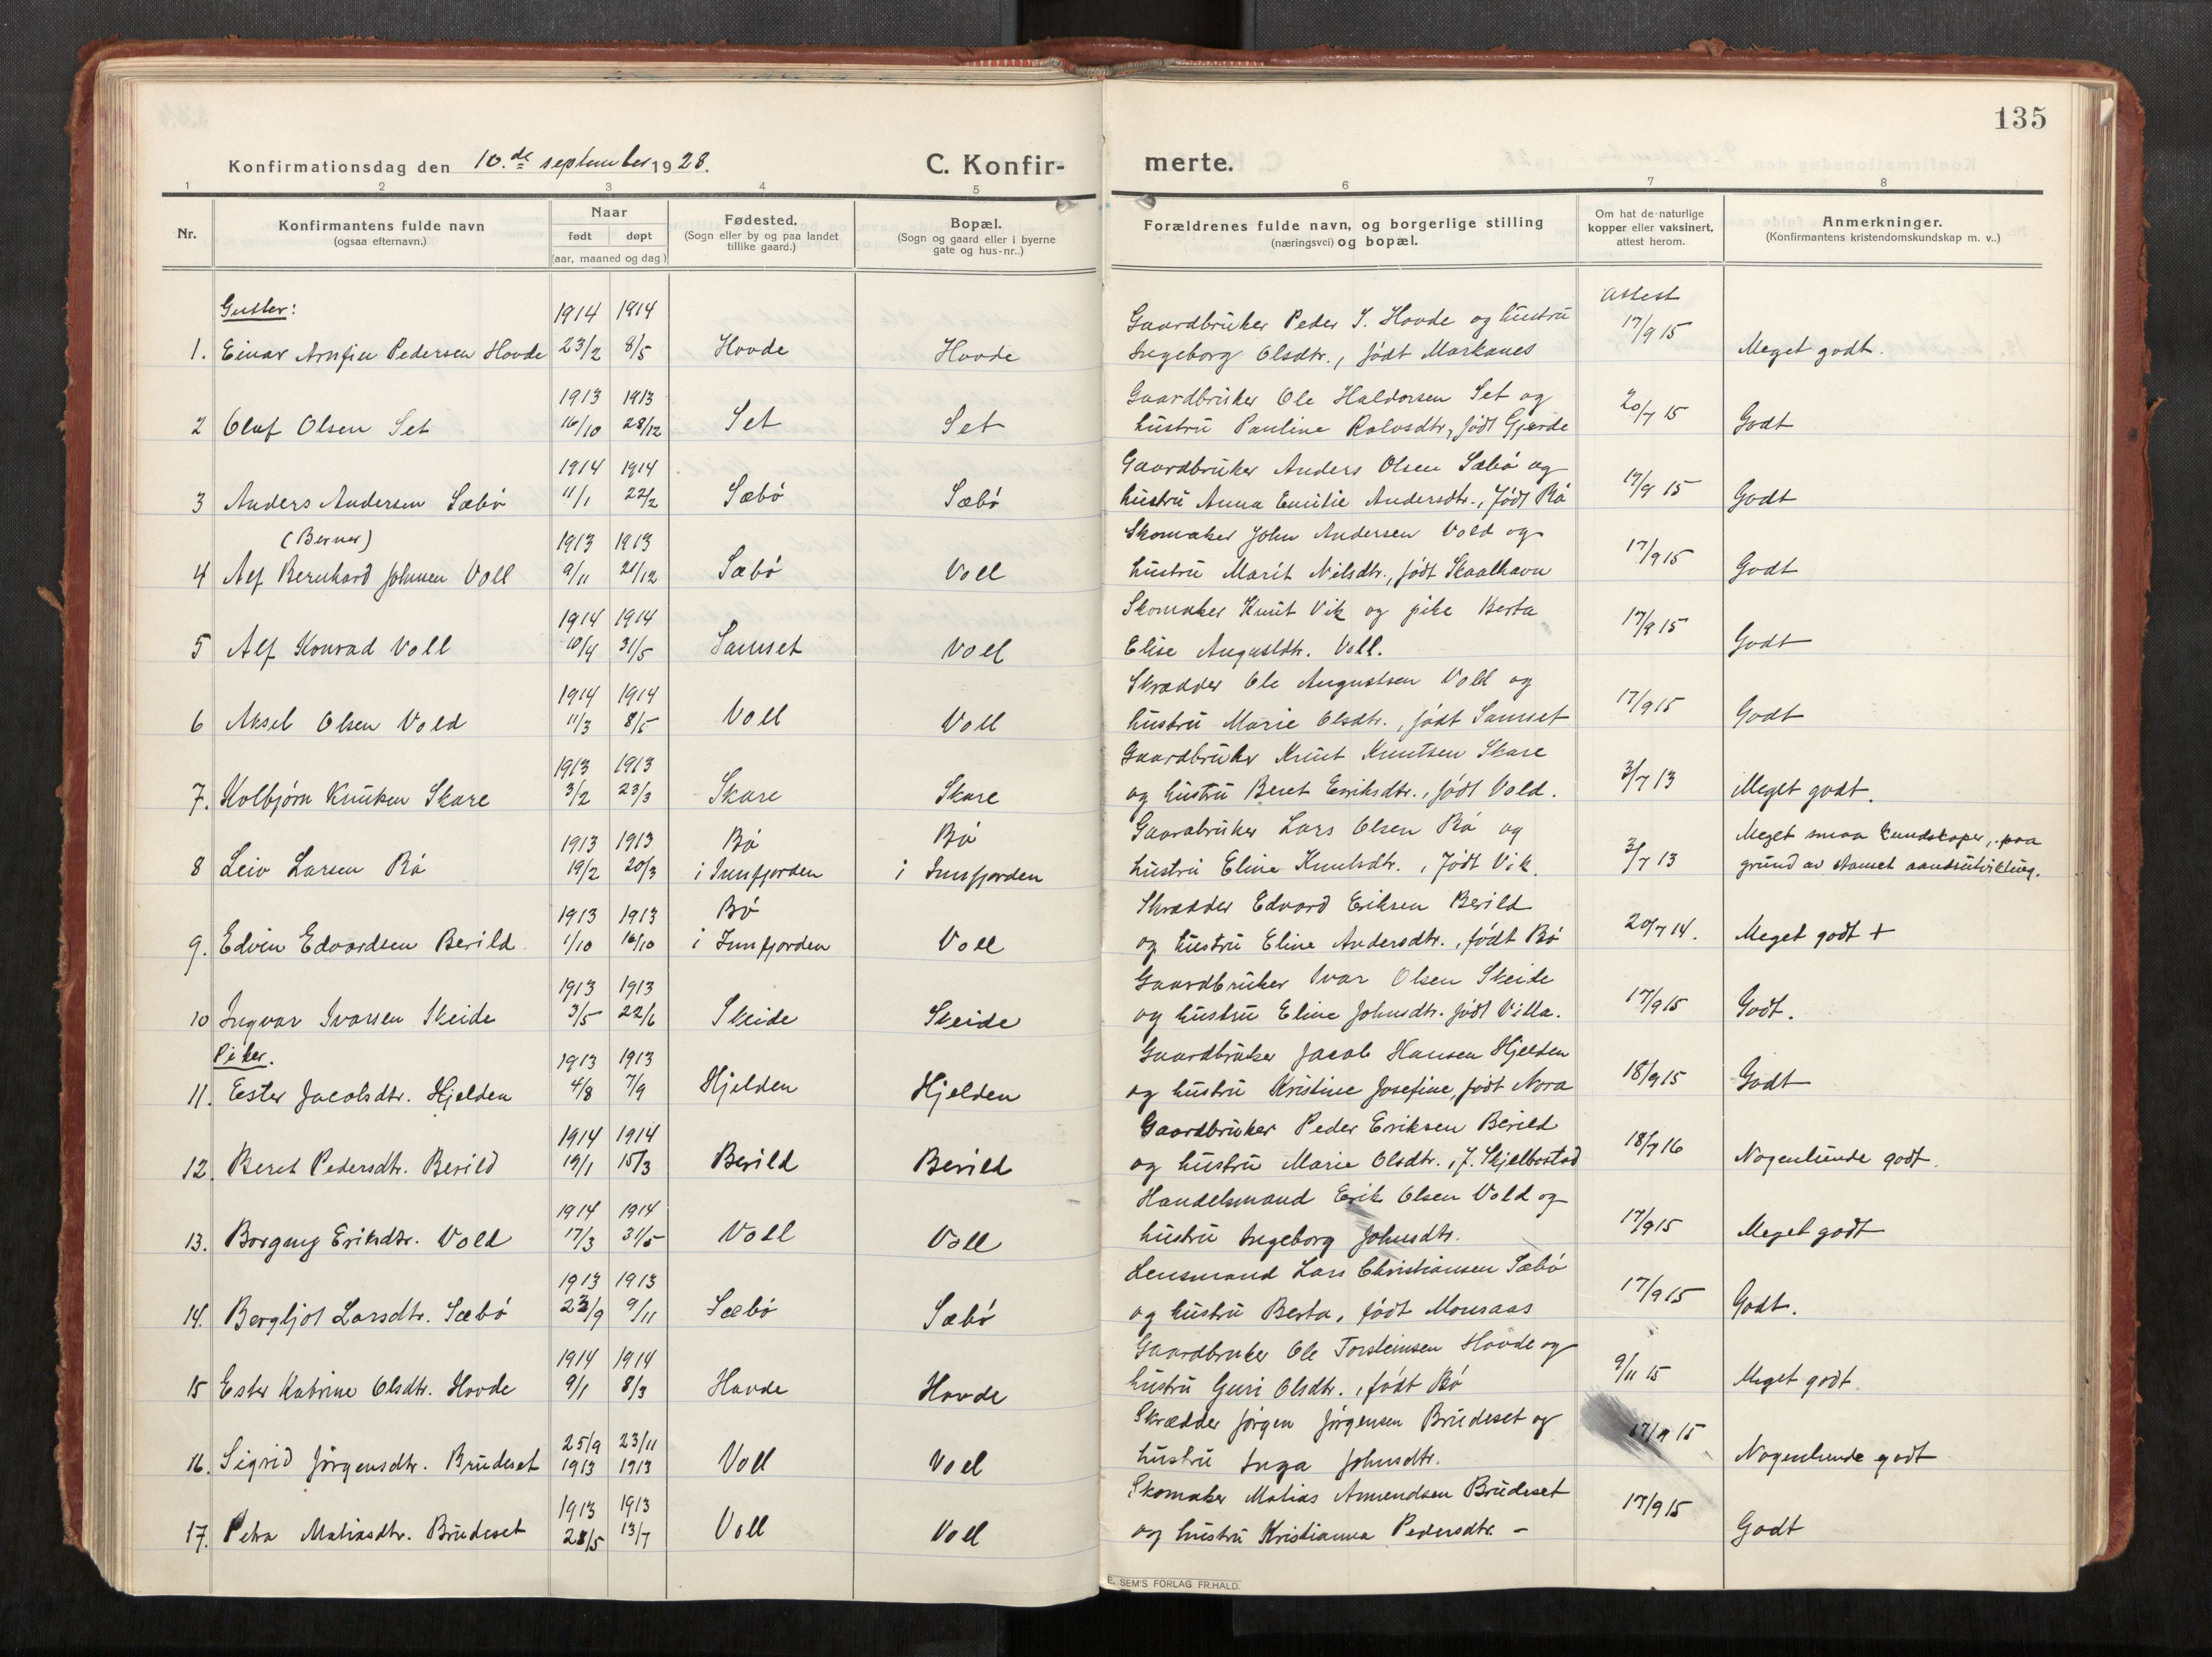 135
Konfirmationsdag den 10.de september 1928. C. Konfir- merte.
1 2 3 4 5 6 7 8
Nr. Konfirmantens fulde navn (ogsaa efternavn.) Naar født døpt (aar, maaned og dag) Fødested. (Sogn eller by og paa landet tillike gaard.) Bopæl. (Sogn og gaard eller i byerne gate og hus-nr..) Forældrenes fulde navn, og borgerlige stilling (næringsvei) og bopæl. Om hat de naturlige kopper eller vaksinert, attest herom. Anmerkninger. (Konfirmantens kristendomskundskap m. v..)
Gutter: 1914 1914 Gaardbruker Peder I. Hovde og hustru attest
1. Einar Arnfin Pedersen Hovde 23/2 8/5 Hovde Hovde Ingeborg Olsdtr., født Markanes 17/9 15 Meget godt.
1913 1913 Gaardbruker Ole Haldorsen Set og
2 Oluf Olsen Set 16/10 28/12 Set Set hustru Pauline Rolvsdtr, født Gjerde 20/7 15 Godt
1914 1914 Gaardbruker Anders Olsen Sæbø og
3 Anders Andersen Sæbø 11/1 22/2 Sæbø Sæbø hustru Anna Emilie Andersdtr., født Bø 17/9 15 Godt
(Berner) 1913 1913 Skomaker John Andersen Vold og
4 Alf Bernhard Johnsen Voll 9/11 21/12 Sæbø Voll hustru Marit Nilsdtr., født Skaalhavn 17/9 15 Godt
1914 1914 Skomaker Knut Vik og pike Berta
5 Alf Konrad Voll 10/4 31/5 Samset Voll Elise Augustdtr. Voll. 17/9 15 Godt
1914 1914 Skrædder Ole Augustsen Vold og
6 Aksel Olsen Vold 11/3 8/5 Voll Voll hustru Marie Olsdtr., født Samset 17/9 15 Godt
1913 1913 Gaardbruker Knut Knutsen Skare
7. Kolbjørn Knutsen Skare 3/2 23/3 Skare Skare og hustru Beret Eriksdtr., født Vold. 3/7 13 Meget godt.
1913 1913 Bø Bø Gaardbruker Lars Olsen Bø og Meget smaa kundskaper, paa
8 Leiv Larsen Bø 19/2 20/3 i Innfjorden i Innfjorden hustru Eline Knutsdtr., født Vik. 3/7 13 grund av aandsutvikling.
1913 1913 Bø Skrædder Edvard Eriksen Berild
9. Edvin Edvardsen Berild 1/10 16/10 i Innfjorden Voll og hustru Eline Andersdtr., født Bø 20/7 14. Meget godt +
1913 1913 Gaardbruker Ivar Olsen Skeide
10 Ingvar Ivarsen Skeide 3/5 22/6 Skeide Skeide og hustru Eline Johnsdtr. født Villa. 17/9 15 Godt.
Piker. 1913 1913 Gaardbruker Jacob Hansen Hjelden
11. Ester Jacobsdtr. Hjelden 4/8 7/9 Hjelden Hjelden og hustru Kristine Josefine, født Nora 18/9 15 Godt
1914 1914 Gaardbruker Peder Eriksen Berild
12. Beret Pedersdtr. Berild 19/1 15/3 Berild Berild og hustru Marie Olsdtr., f. Skjelbostad 18/7 16 Nogenlunde godt.
1914 1914 Handelsmand Erik Olsen Vold og
13. Borgny Eriksdtr. Vold 17/3 31/5 Voll Voll hustru Ingeborg Johnsdtr. 17/9 15 Meget godt
1913 1913 Lensmand Lars Christiansen Sæbø
14. Bergljot Larsdtr. Sæbø 23/9 9/11 Sæbø Sæbø og hustru Berta, født Monsaas 17/9 15 Godt.
1914 1914 Gaardbruker Ole Torsteinsen Hovde og
15 Ester Katrine Olsdtr. Hovde 9/1 8/3 Hovde Hovde hustru Guri Olsdtr., født Bø 9/11 15 Meget godt
25/9 23/11 Skrædder Jørgen Jørgensen Brudeset og
16. Sigrid Jørgensdtr. Brudeset 1913 1913 Voll Voll hustru Inga Johnsdtr. 17/9 15 Nogenlunde godt
1913 1913 Skomaker Matias Amundsen Brudeset
17. Petra Matiasdtr. Brudeset 28/5 13/7 Voll Voll og hustru Kristianna Pedersdtr. - 17/9 15 Godt
E. SEM'S FORLAG FR.HALD.